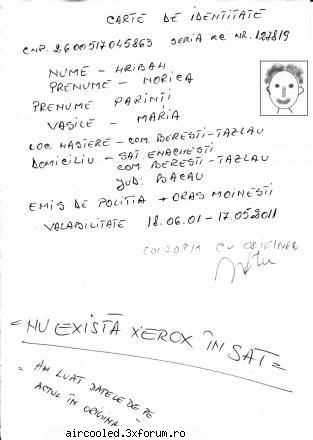 CARTE DE IDENTITATE
CNP. 2600517045863 SERIA XC NR. 127819
NUME - HRIBAN
PRENUME - NORICA
PRENUME PARINTI
VASILE - MARIA
LOC NASTERE - COM. BERESTI-TAZLAU
DOMICILIU - SAT. ENACHESTI
COM BERESTI-TAZLAU
JUD: BACAU
EMIS DE POLITIA + ORAS MOINESTI
VALABILITATE 18.06.01 - 17.05.2011
CONFORM CU ORIGINAL
= NU EXISTĂ XEROX ÎN SAT =
= AM LUAT DATELE DE PE
ACTUL ÎN ORIGINAL
aircooled.3xforum.ro